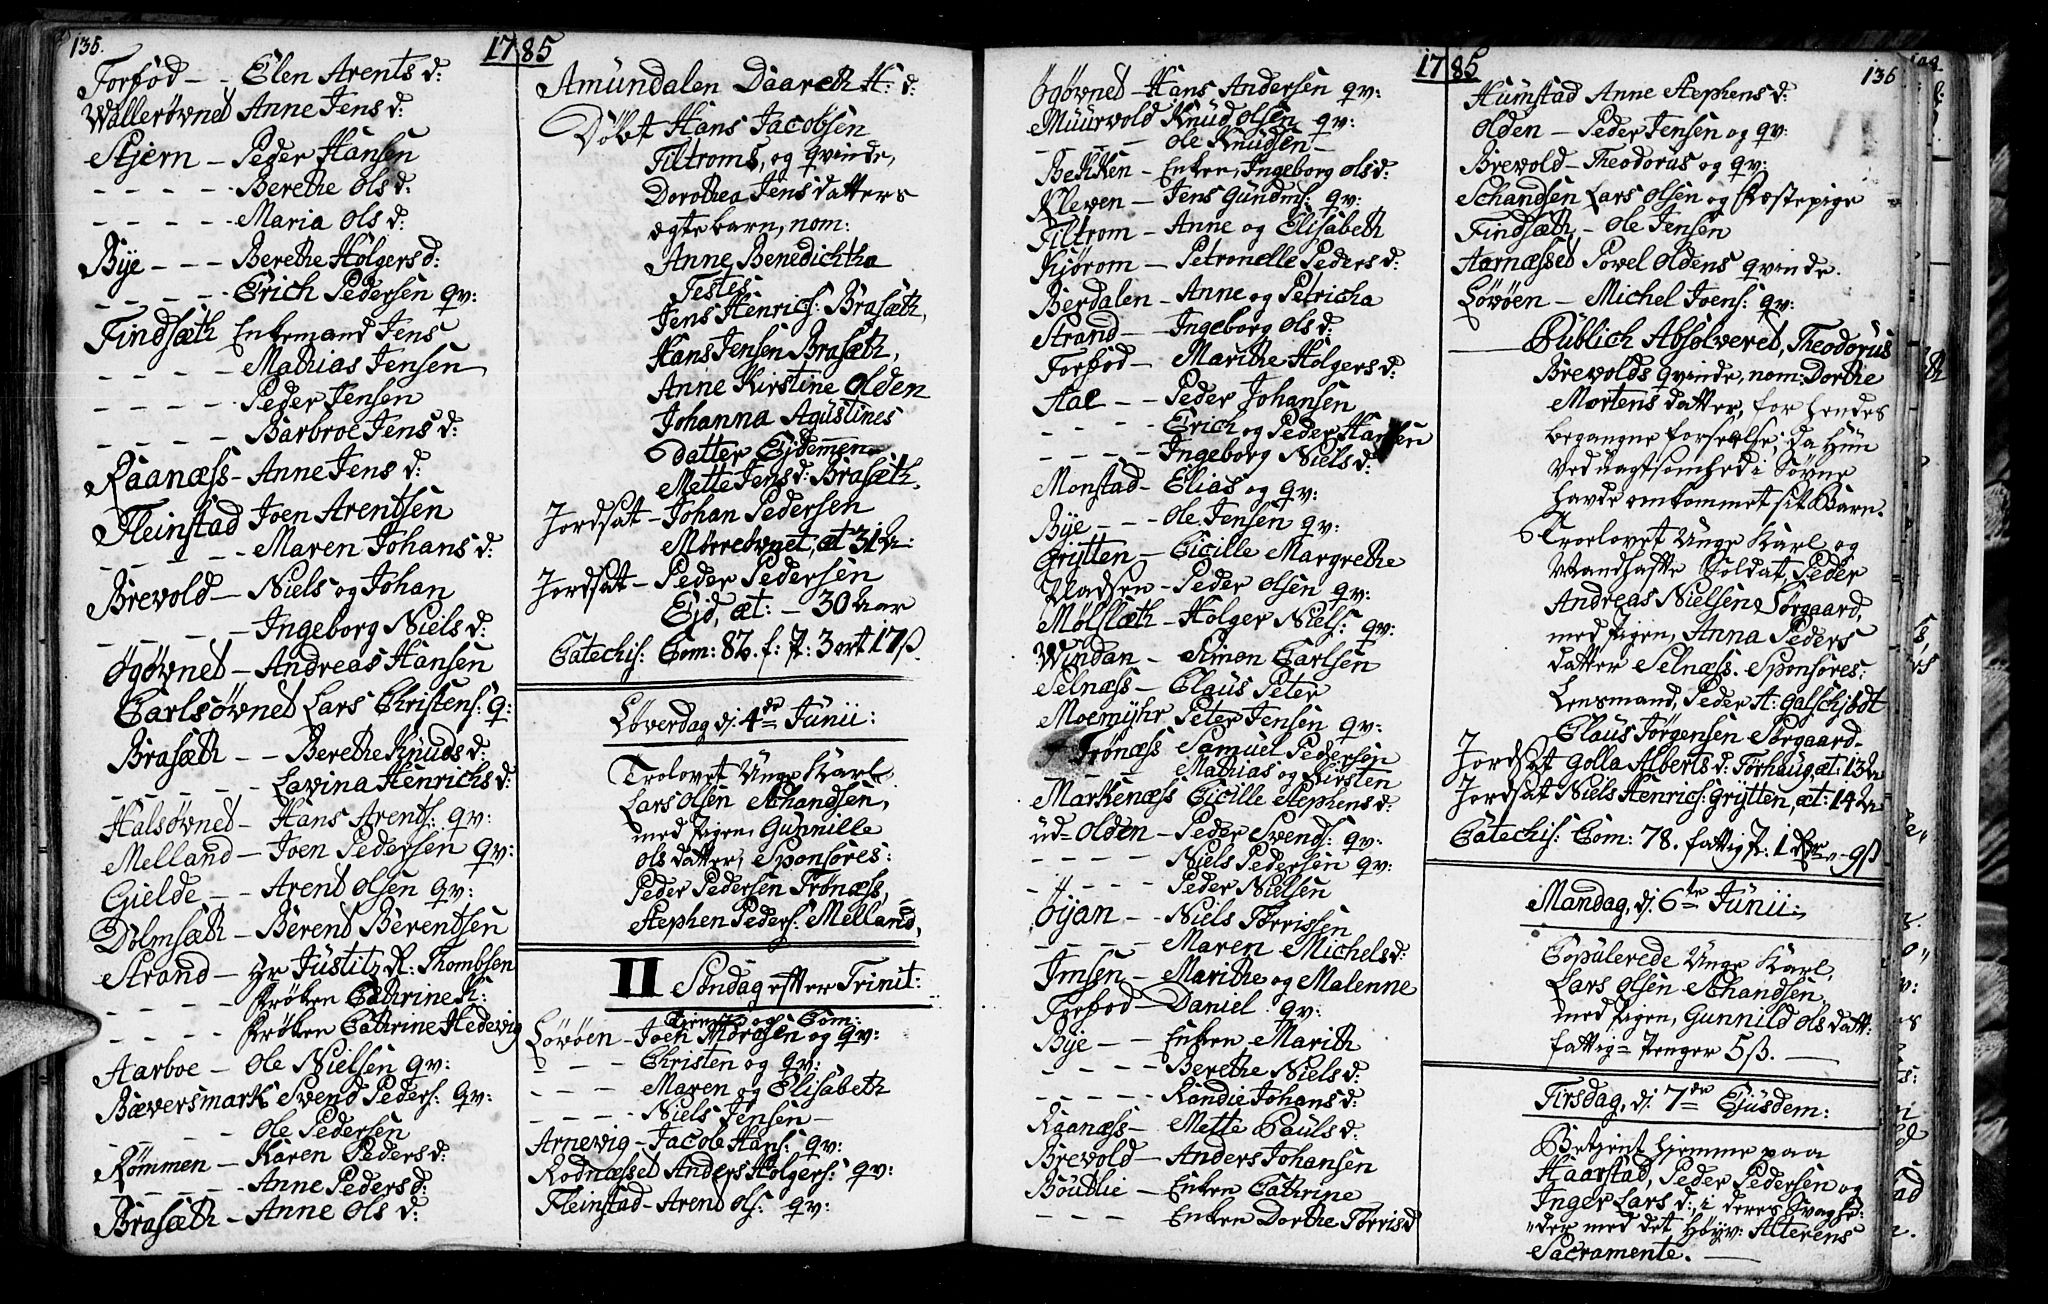 135.
1785
Forfod - - Elen Arents d:
Wallerøvnet Anne Jens d:
Stjern - Peder Hansen
- - - - Berethe Ols d:
- - - - Maria Ols d:
Bye - - - Berethe Holgers d:
- - - - Erich Pedersen qv:
Findsæth Enkemand Jens
- - - - Mathias Jensen
- - - - Peder Jensen
- - - - Barbroe Jens d:
Raanæss - Anne Jens d:
Fleinstad Joen Arentsen
- - - - Maren Johans d:
Brevold - Niels og Johan
- - - - Ingeborg Niels d:
Øgøvnet - Andreas Hansen
Carlsøvnet Lars Christens: q:
Brasæth - - Berethe Knuds d:
- - - - Lavina Henrichs d:
Halsøvnet - Hans Arents: qv:
Melland - Joen Pedersen qv:
Gielde - - Arent Olsen qv:
Dolmsæth - Berent Berentsen
Strand - Hr Justitz R: Thombsen
- - - Frøken Cathrine H:
- - - - Frøken Cathrine Hedevig
Aarboe - Ole Nielsen qv:
Bæversmark Svend Peders: qv:
- - - - Ole Pedersen
Rømmen - Karen Peders d:
- - - - Anne Peders d:
Brasæth - Anne Ols d:
Amundalen Daareth H: d:
Døbt Hans Jacobsen
Tiltroms, og qvinde,
Dorothea Jens datters
ægte barn, nom:
Anne Benedichtha
Testes
Jens Henrics: Brasæth,
Hans Jensen Brasæth,
Anne Kirstine Olden
Johanna Agustines
Datter Ejdemmen
Mette Jens d: Brasæth.
Jordsat - Johan Pedersen
Mørreøvnet, æt 31 Ar:
Jordsat - Peder Pedersen
Eid, æt: - 30 Aar
Catechis: Com: 82. f: P: 3 ort 17 ß.
Løverdag d: 4de Junii:
Trolovet Unge Karl,
Lars Olsen Schandsen,
med Pigen, Gunnille
Ols datter, Sponsores:
Peder Pedersen Trønæss,
Stephen Peders: Melland,
II Søndag efter Trinit:
Tieneste og Com:
Løvøen - Joen Morasen og qv:
- - - Christen og qv:
- - - Maren og Elisabeth
- - - - Niels Jensen -
Arnevig - Jacob Hans: qv:
Rodnæsset Anders Holgers: qv:
Fleinstad - Arent Ols: qv:
1785
136
Øgøvnet - Hans Andersen qv:
Muurvold Knud Olsen qv:
- - - - Ole Knudsen -
Bekken - Enken, Ingeborg Ols d:
Kleven - Jens Gundms: qv:
Tiltrom - Anne og Elisabeth
Kjørom - Petronelle Peders d:
Berdalen - Anne og Petricha
Strand - Ingeborg Ols d:
Forfod - Marithe Holgers d:
Aae - - Peder Johansen
- - - - Erich og Peder Hansen
- - - - Ingeborg Niels d:
Monstad - Elias og qv:
Bye - - - Ole Jensen qv:
Grytten - Cicille Margrethe
Pladsen - Peder Olsen qv:
Mølslæth - Holger Niels: qv:
Windan - Simon Carlsen
Selnæss - Claus Peter
Moemyhr Peter Jensen qv:
Trønæss Samuel Pedersen
- - - Mathias og Kirsten
Markenæss Cicille Stephens d:
ud=Olden - Peder Svends: qv:
- - - - Niels Pedersen qv:
- - - - Peder Nielsen
Øyan - - Niels Torrissen
- - - - Maren Michels d:
Imsen - Marithe og Malenne
Forfod - Daniel qv:
Bye - - Enken Marith
- - - - Berethe Niels d:
- - - - Randie Johans d:
Raanæss - Mette Pauls d:
Brevold - Anders Johansen
Boudlie - Enken Cathrine
- - - Enken Dorthe Torris d
Humstad Anne Stephens d:
Olden - Peder Jensen og qv:
Brevold - Theodorus og qv:
Schandsen Lars Olsen og Fæstepige
Findsæth - Ole Jensen
Aarnæsset Povel Oldens qvinde.
Løvøen - Michel Joens: qv:
Publich Absolveret, Theodorus
Brevolds qvinde, nom: Dorthe
Mortens datter, for hendes
begangne forseelse, da hun
ved uagtsomhed i Søvne
havde omkommet sit Barn.
Troelovet Unge Karl og
Mandhafte Soldat, Peder
Andreas Nielsen Sørgaard,
med Pigen, Anna Peders
datter Selnæss. Sponsores:
Lensmand, Peder A: Galschjødt
Claus Jørgensen Sørgaard.
Jordsat Golla Alberts d: Torhaug æt: 13 Ar
Jordsat Niels Henrics: Grytten, æt: 14 Ar
Catechis: Com: 78. fattig P: 1 Rr - 9 ß
Mandag, d: 6te Junii:
Copulerede Unge Karl,
Lars Olsen Schandsen,
med Pigen, Gunnild Ols datt:
fattig=Penger 5 ß. -
Tirsdag, d: 7de Ejusdem:
Betient hjemme paa
Haarstad, Peder Pedersen og
Inger Lars d: i deres Svaghe=
der med det Høyv: Alterens
Sacramente. -